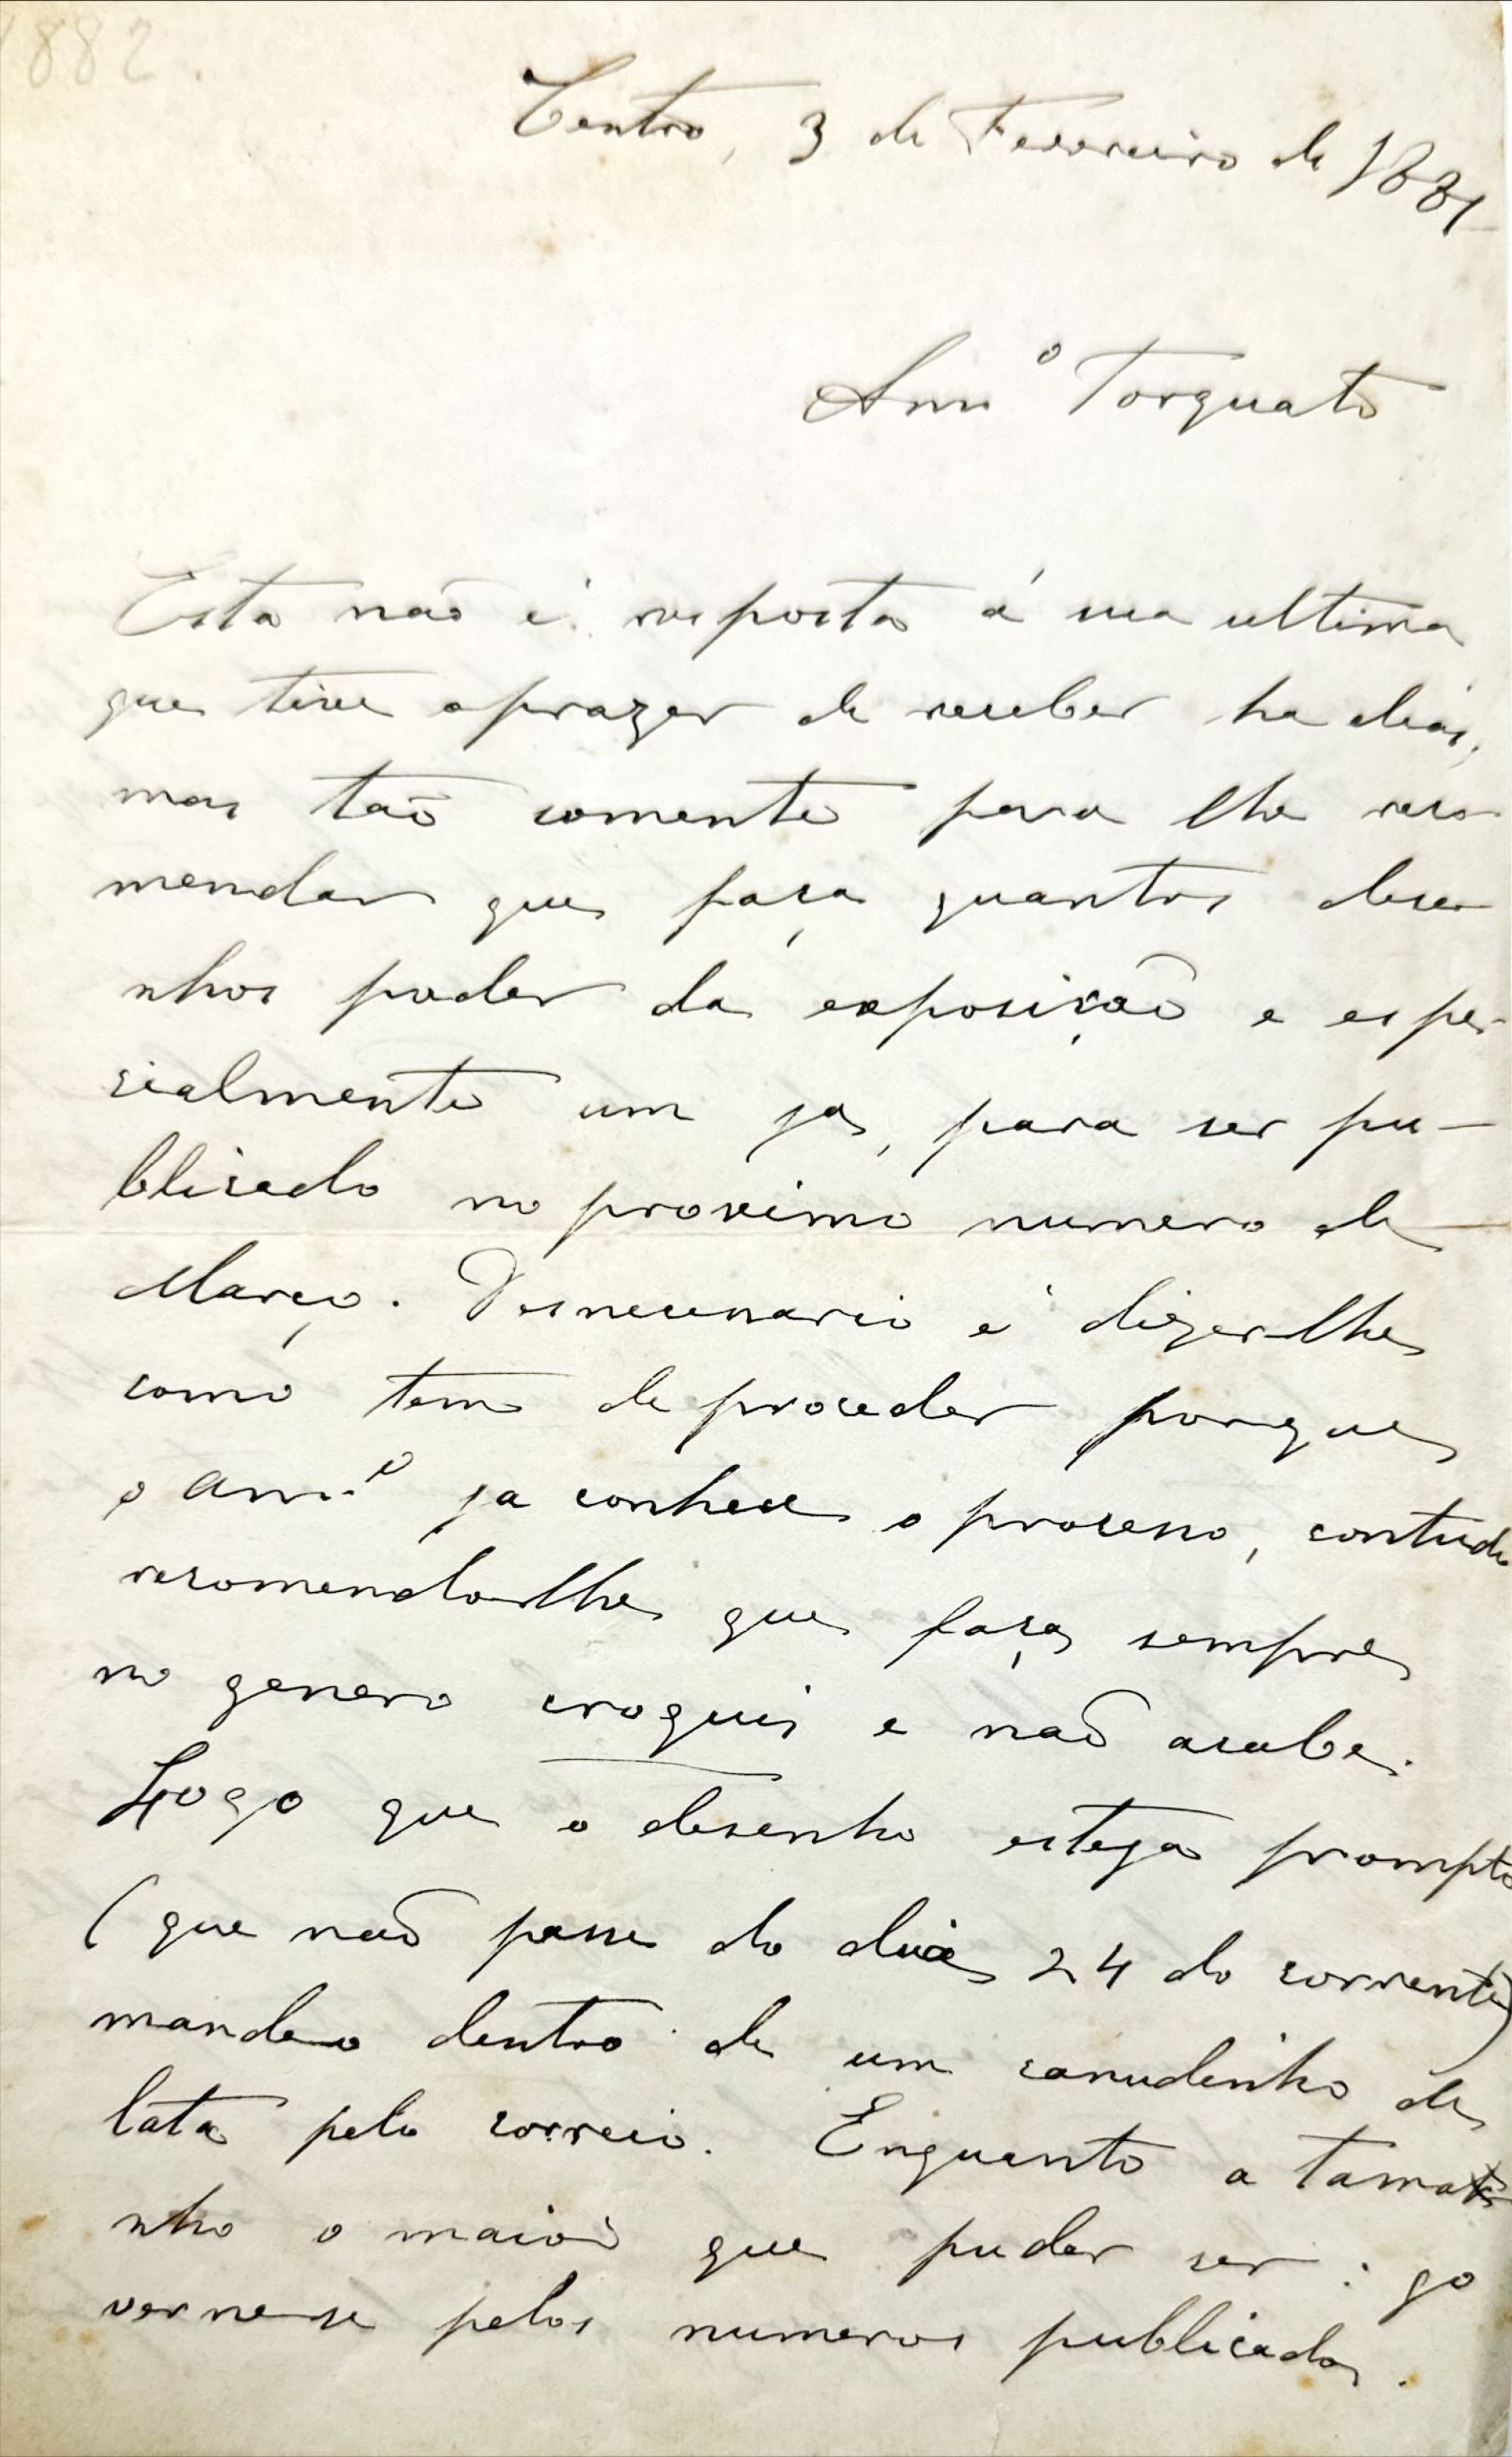 1882.
Centro, 3 de Fevereiro de 1881
Ami.º Torquato
Esta não é resposta á sua ultima
que tive o prazer de receber ha dias,
mas tão somente para lhe reco-
mendar que faça quantos dese-
nhos poder da exposição e espe-
cialmente um já, para ser pu-
blicado no proximo numero de
Março. Desnecessario é dizer-lhe
como tem de proceder porque
o ami.º ja conhece o processo, contudo
recomendo-lhe que faça sempre
no genero croquis e não acabe.
Logo que o desenho esteja prompto
(que não passe do dia 24 do corrente)
mande-o dentro de um canudinho de
lata pelo correio. Enquanto a tama-
nho o maior que puder ser: go
verne-se pelos numeros publicados.